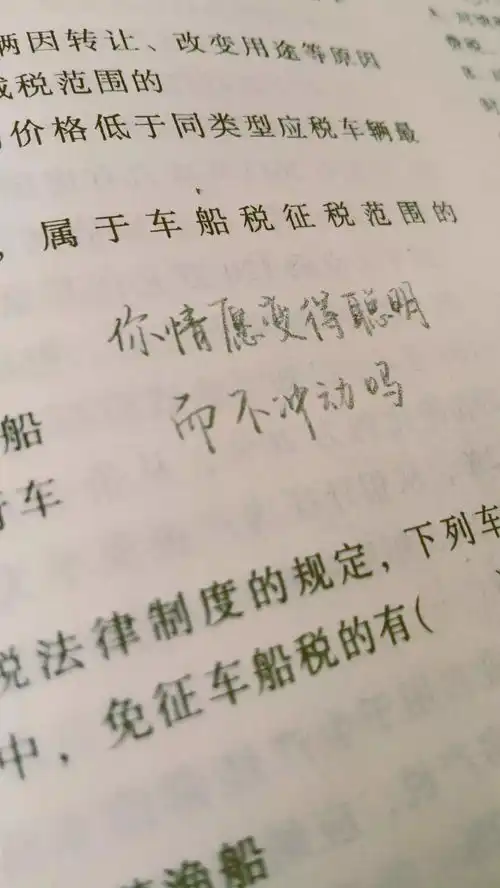 两因转让、改变用途等原因
税范围的
价格低于同类型应税车辆最
，属于车船税征税范围的
你情愿变得聪明
而不冲动吗
船
行车
税法律制度的规定，下列车
中，免征车船税的有(
渔船